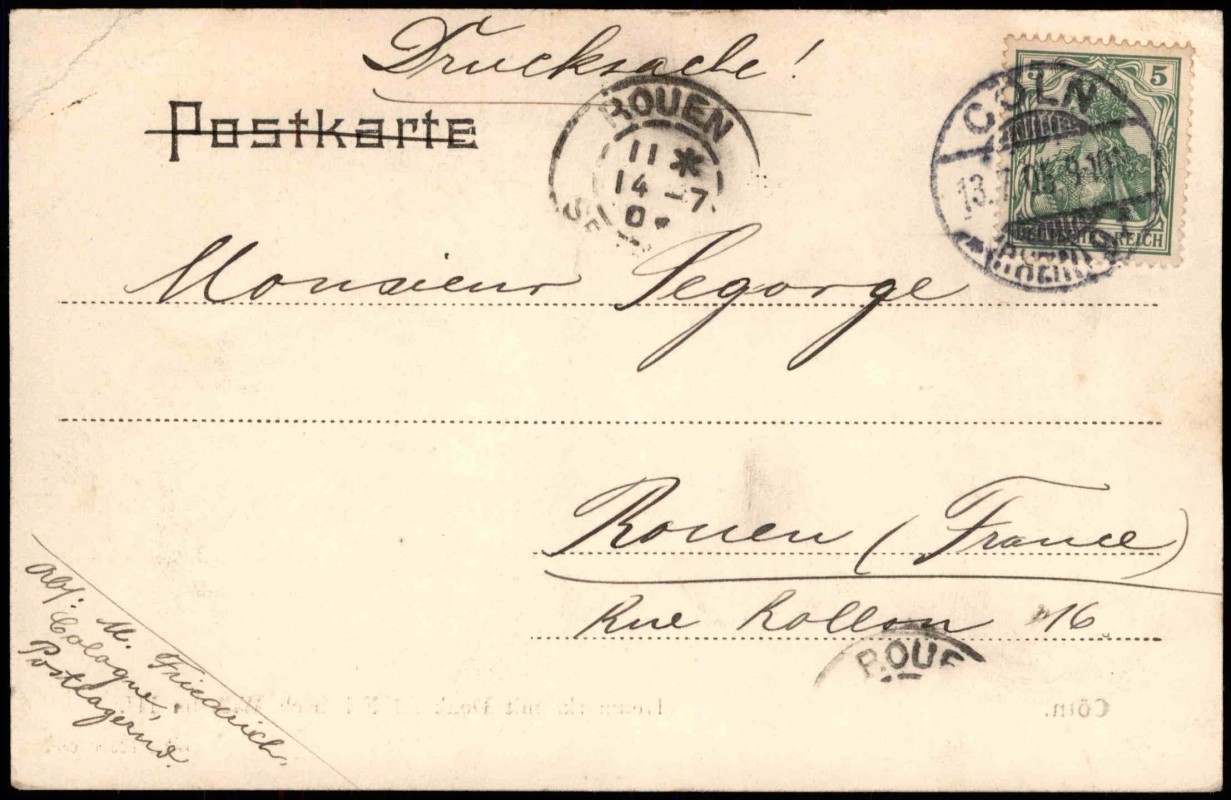 Drucksache!
Postkarte
ROUEN
11 *
14 -7
5
5
CÖLN
13.7.05. 9-10
(RHEIN)
DEUTSCHES REICH
Monsieur Segorge
Rouen (France)
Rue Rollon 16
ROUE
Abs: M. Friedrich,
Cologne,
Postlagernd.
Cöln.